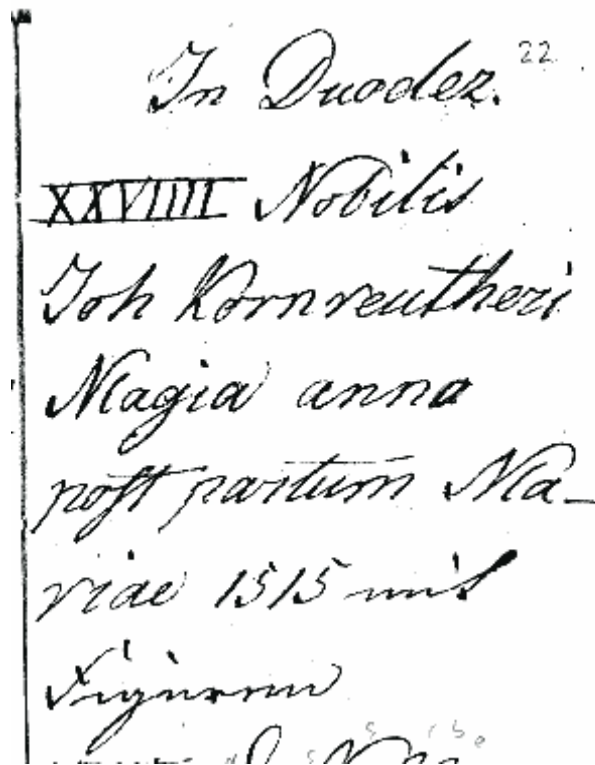 22
In Duodez.
XXVIIII Nobilis
Joh Kornreutheri
Magia anno
post partum Ma-
riae 1515 mit
Figuren